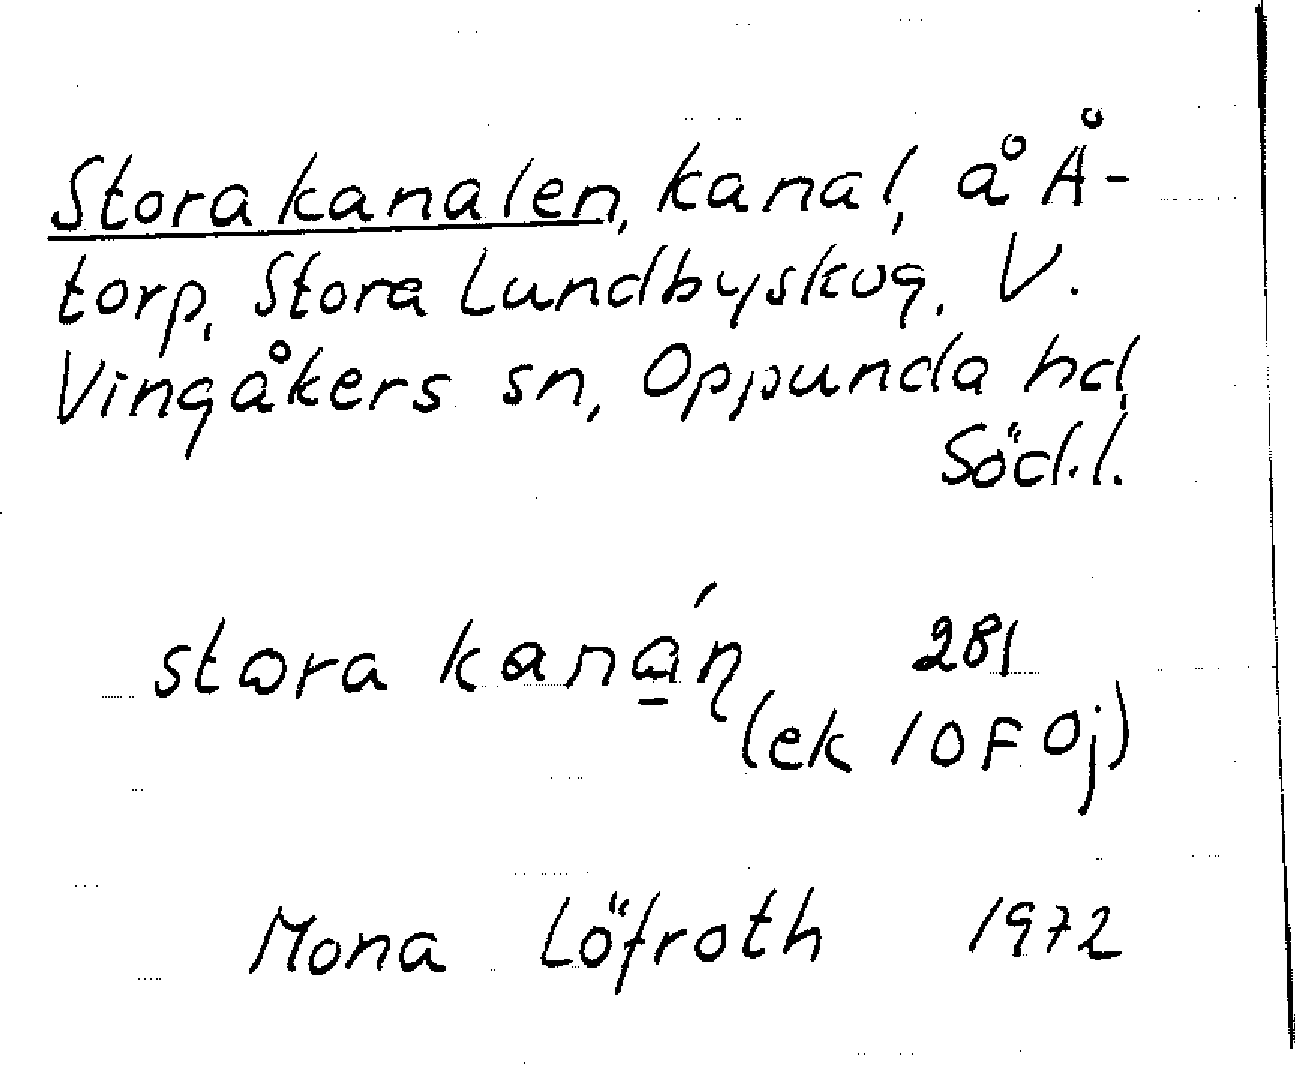 Stora kanalen, kanal, å Å-
torp, Stora Lundbyskog, V.
Vingåkers sn, Oppunda hd,
Södl.
stora 281
(ek 10F 0j)
Mona Löfroth 1972